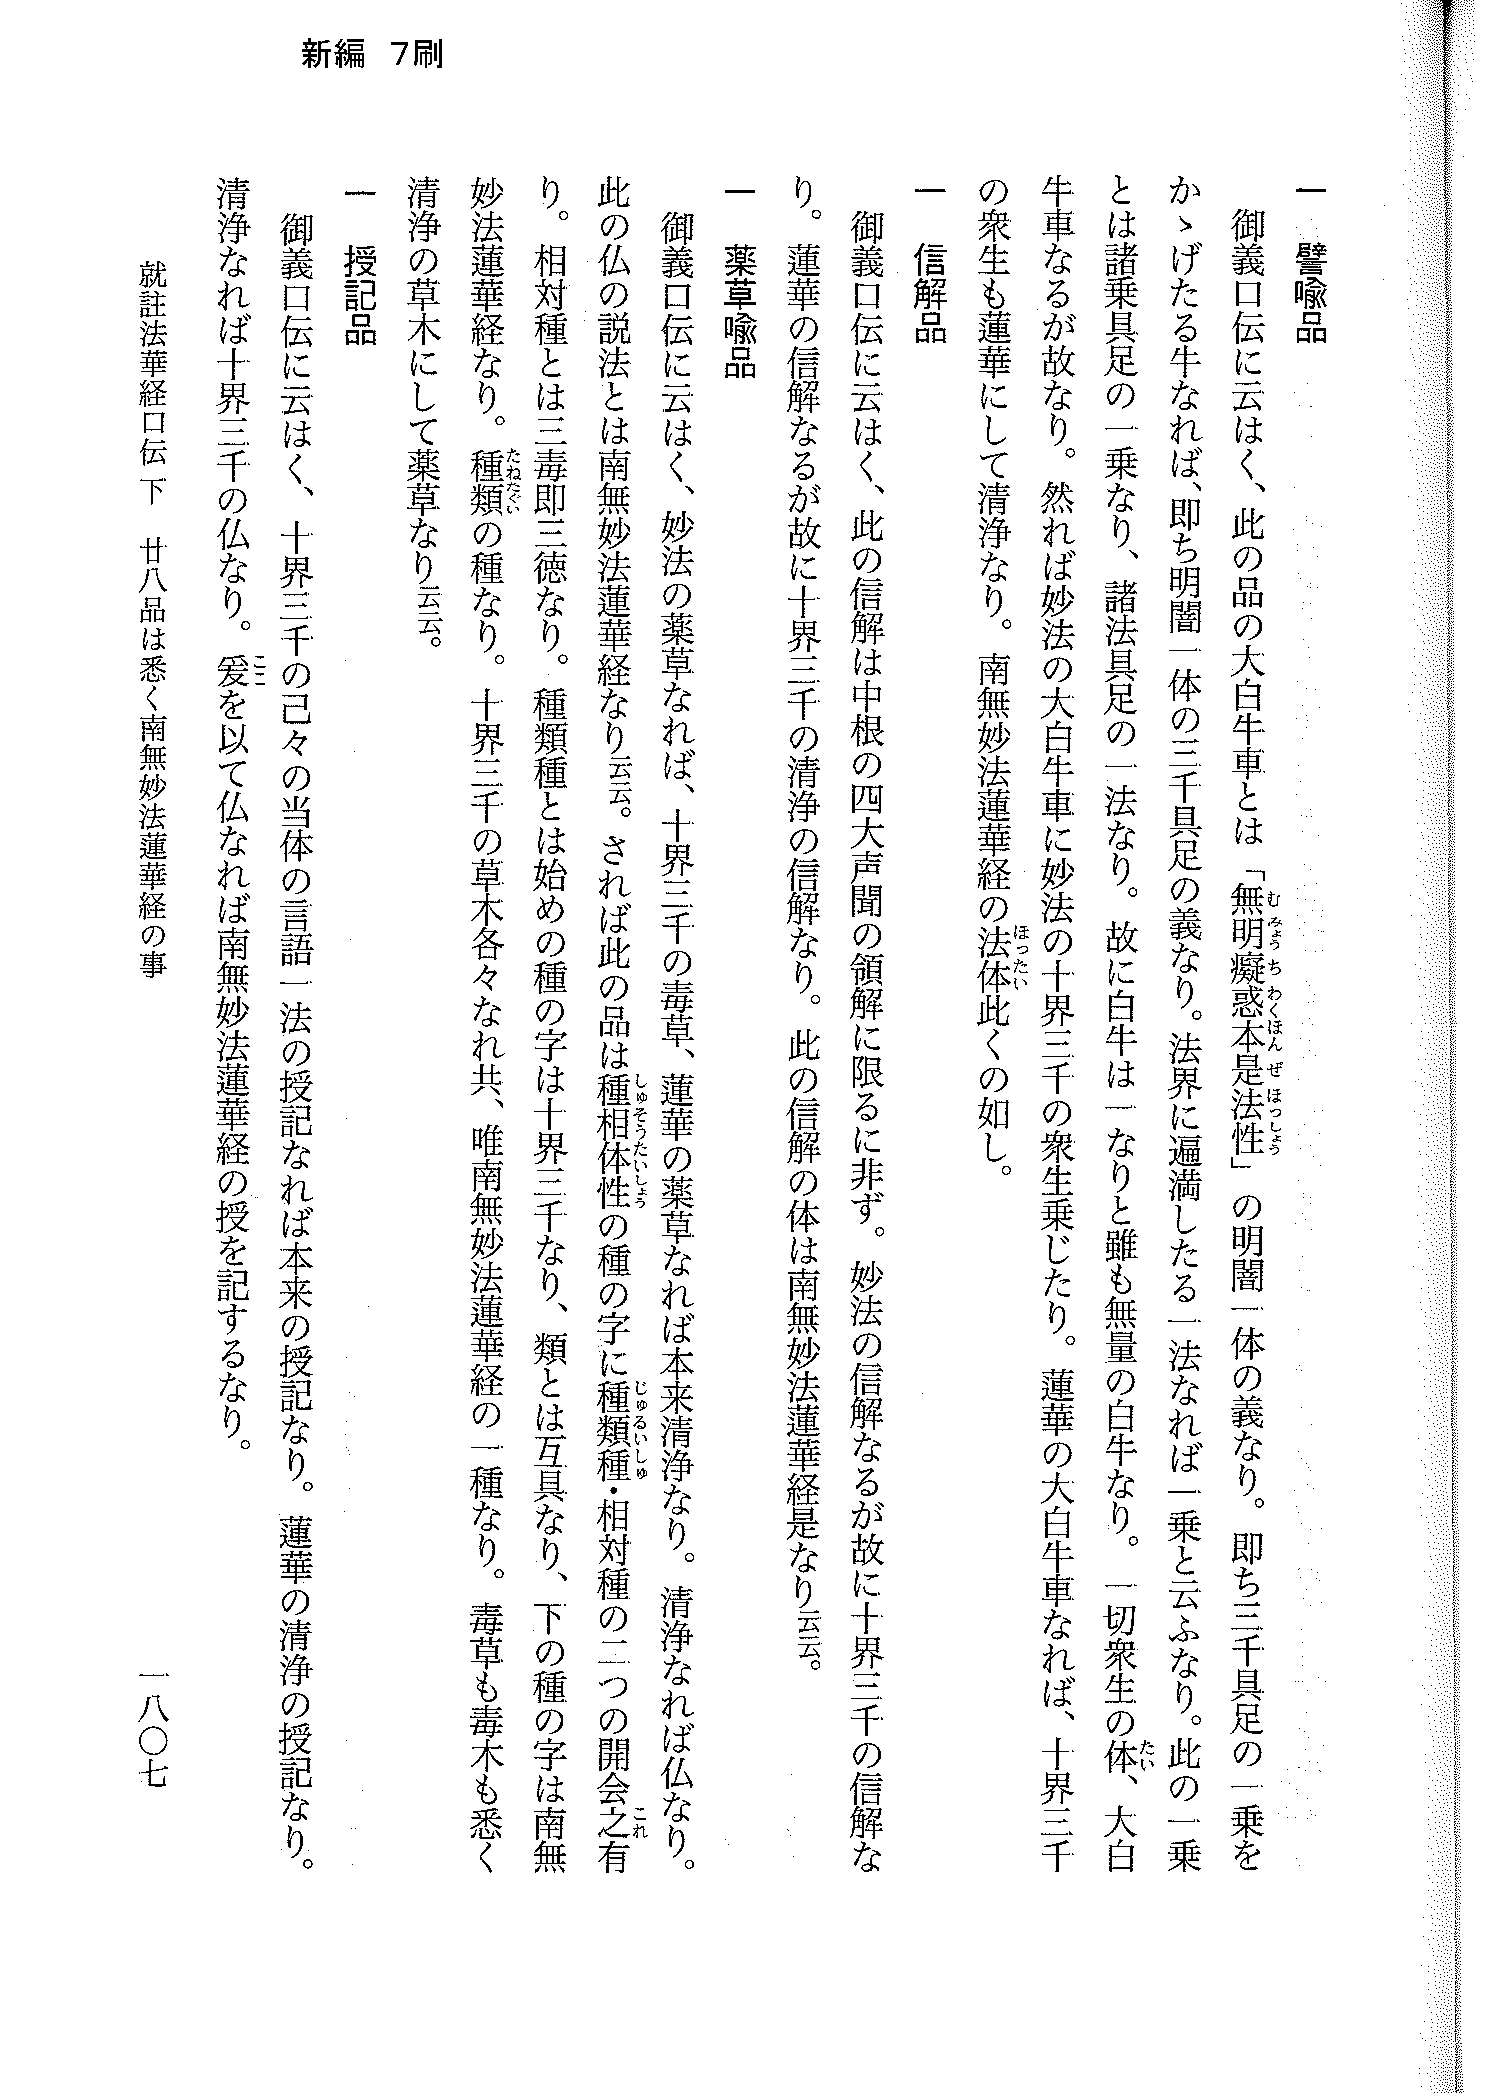 新編 7刷
一 譬喩品
御義口伝に云はく、此の品の大白牛車とは「無明癡惑本是法性」の明闇一体の義なり。即ち三千具足の一乗を
かゝげたる牛なれば、即ち明闇一体の三千具足の義なり。法界に遍満したる一法なれば一乗と云ふなり。此の一乗
とは諸乗具足の一乗なり、諸法具足の一法なり。故に白牛は一なりと雖も無量の白牛なり。一切衆生の体、大白
牛車なるが故なり。然れば妙法の大白牛車に妙法の十界三千の衆生乗じたり。蓮華の大白牛車なれば、十界三千
の衆生も蓮華にして清浄なり。南無妙法蓮華経の法体此くの如し。
一 信解品
御義口伝に云はく、此の信解は中根の四大声聞の領解に限るに非ず。妙法の信解なるが故に十界三千の信解な
り。蓮華の信解なるが故に十界三千の清浄の信解なり。此の信解の体は南無妙法蓮華経是なり云云。
一 薬草喩品
御義口伝に云はく、妙法の薬草なれば、十界三千の毒草、蓮華の薬草なれば本来清浄なり。清浄なれば仏なり。
此の仏の説法とは南無妙法蓮華経なり云云。されば此の品は種相体性の種の字に種類種・相対種の二つの開会之有
り。相対種とは三毒即三徳なり。種類種とは始めの種の字は十界三千なり、類とは互具なり、下の種の字は南無
妙法蓮華経なり。種類の種なり。十界三千の草木各々なれ共、唯南無妙法蓮華経の一種なり。毒草も毒木も悉く
清浄の草木にして薬草なり云云。
一 授記品
御義口伝に云はく、十界三千の己々の当体の言語一法の授記なれば本来の授記なり。蓮華の清浄の授記なり。
清浄なれば十界三千の仏なり。爰を以て仏なれば南無妙法蓮華経の授を記するなり。
就註法華経口伝 下 廿八品は悉く南無妙法蓮華経の事
一八〇七